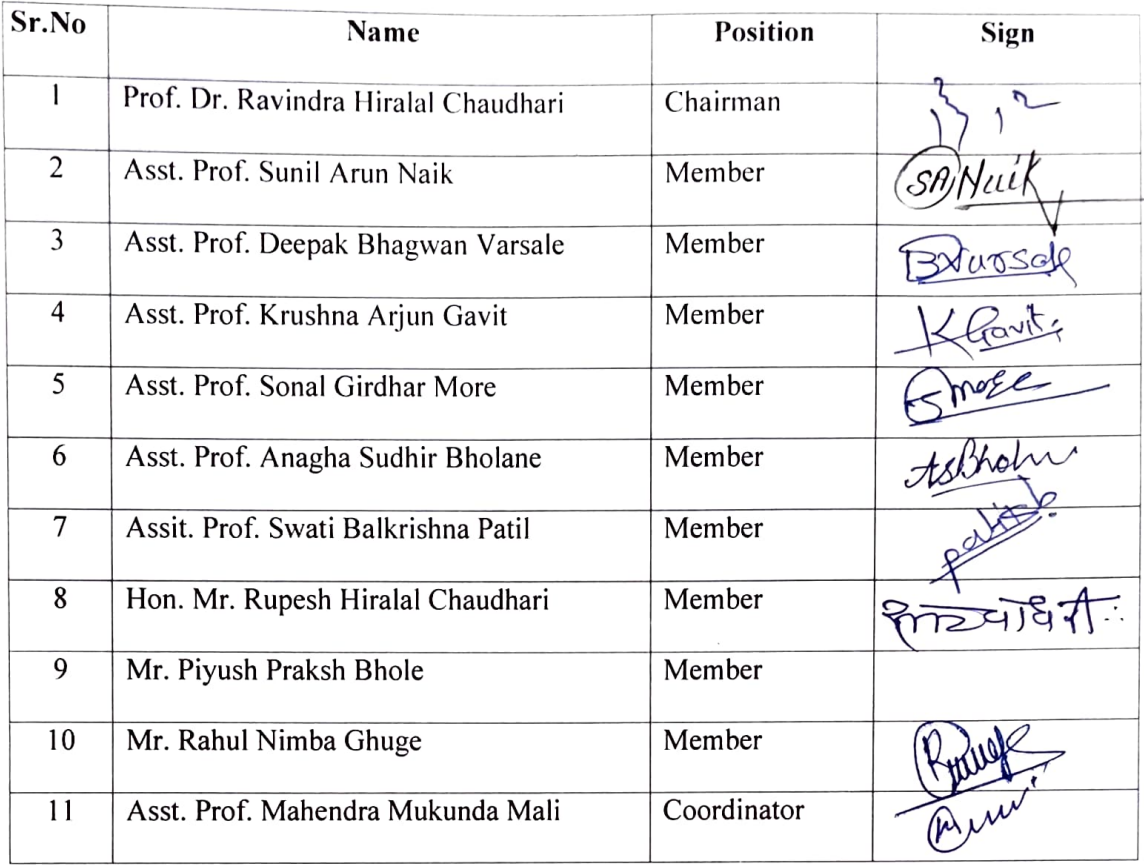 Sr.No Name Position Sign
1 Prof. Dr. Ravindra Hiralal Chaudhari Chairman
2 Asst. Prof. Sunil Arun Naik Member SA Naik
3 Asst. Prof. Deepak Bhagwan Varsale Member
4 Asst. Prof. Krushna Arjun Gavit Member K Gavit
5 Asst. Prof. Sonal Girdhar More Member Smore
6 Asst. Prof. Anagha Sudhir Bholane Member
7 Assit. Prof. Swati Balkrishna Patil Member
8 Hon. Mr. Rupesh Hiralal Chaudhari Member
9 Mr. Piyush Praksh Bhole Member
10 Mr. Rahul Nimba Ghuge Member
11 Asst. Prof. Mahendra Mukunda Mali Coordinator